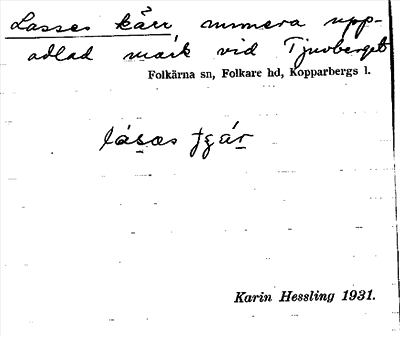 Lasses kärr, numera upp-
odlad mark vid Tjuvberget
Folkärna sn, Folkare hd, Kopparbergs l.
Karin Hessling 1931.